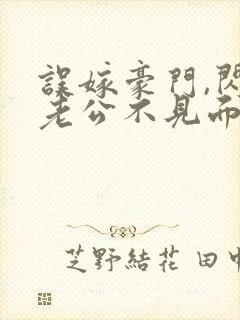 誤嫁豪門,閃
老公不見而
芝野結花 田中